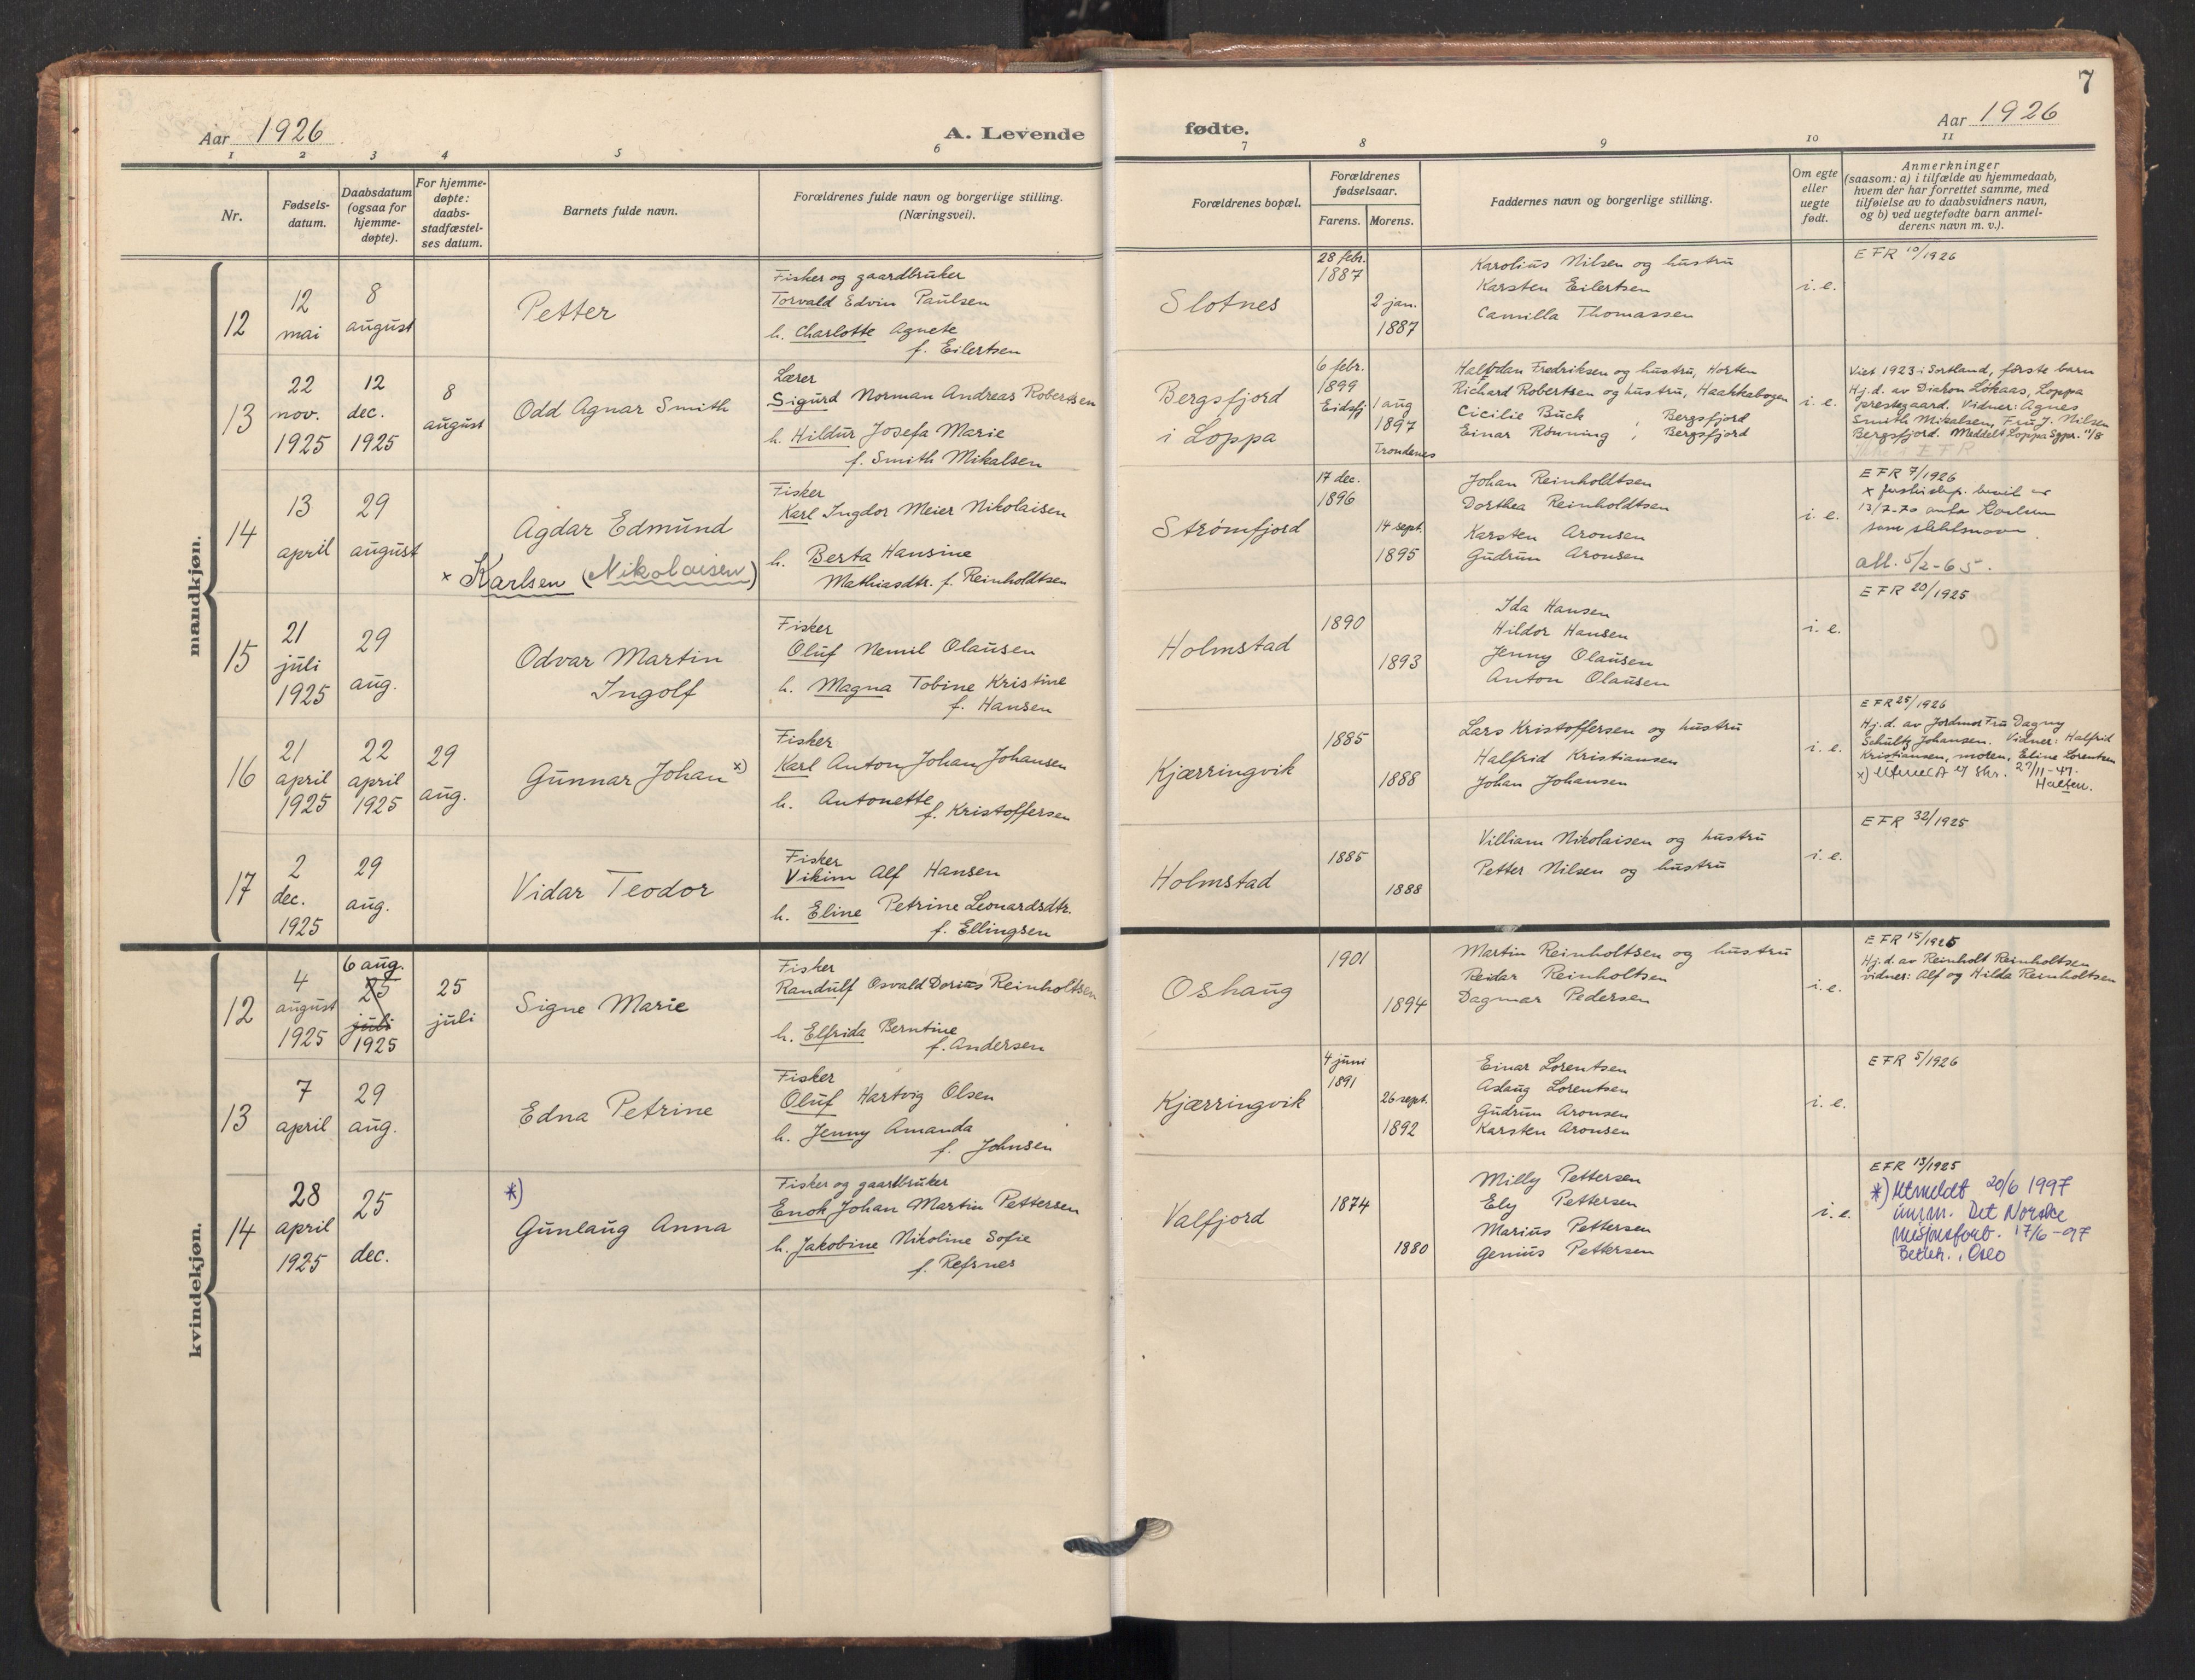 7
Aar 1926
A. Levende
fødte.
Aar 1926
1 2 3 4 5 6 7 8 9 10 11
Nr.
Fødsels-
datum.
Daabsdatum
(ogsaa for
hjemme-
døpte).
For hjemme-
døpte:
daabs-
stadfæstel-
ses datum.
Barnets fulde navn.
Forældrenes fulde navn og borgerlige stilling.
(Næringsvei).
Forældrenes bopæl.
Forældrenes
fødselsaar.
Farens. Morens.
Faddernes navn og borgerlige stilling.
Om egte
eller
uegte
født.
Anmerkninger
(saasom: a) i tilfælde av hjemmedaab,
hvem der har forrettet samme, med
tilføielse av to daabsvidners navn,
og b) ved uegtefødte barn anmel-
derens navn m. v.).
mandkjøn.
12
12
mai
8
august
Petter
Fisker og gaardbruker
Torvald Edvin Paulsen
h. Charlotte Agnete
f. Eilertsen
Slotnes
28 febr.
1887
2 jan.
1887
Karolius Nilsen og hustru
Karsten Eilertsen
Camilla Thomassen
i. e.
EFR 10/1926
13
22
nov.
1925
12
dec.
1925
8
august
Odd Agnar Smith
Lærer
Sigurd Norman Andreas Robertsen
h. Hildur Josefa Marie
f. Smith Mikalsen
Bergsfjord
i Loppa
6 febr.
1899
Eidsfj
1 aug
1897
Trondenes
Halfdan Fredriksen og hustru, Horten
Richard Robertsen og hustru, Haakkabogen
Cicilie Buck, Bergsfjord
Einar Rønning, Bergsfjord
i. e.
Viet 1923 i Sortland, første barn
Hj. d. av Diakon Løkaas, Loppa
prestegaard. Vidner: Agnes
Smith Mikalsen, Fru J. Nilsen
Bergsfjord. Meddelt Loppa Sgpr. 11/8
Ikke i EFR
14
13
april
29
august
Agdar Edmund
× Karlsen (Nikolaisen)
Fisker
Karl Ingdor Meier Nikolaisen
h. Berta Hansine
Mathiasdtr. f. Reinholdtsen
Strømfjord
17 dec.
1896
14 sept.
1895
Johan Reinholdtsen
Dorthea Reinholdtsen
Karsten Aronsen
Gudrun Aronsen
i. e.
EFR 7/1926
13/7-70 Karlsen
som slektsnavn.
att. 5/2-65.
15
21
juli
1925
29
aug.
Odvar Martin
Ingolf
Fisker
Oluf Nemil Olausen
h. Magna Tobine Kristine
f. Hansen
Holmstad
1890
1893
Ida Hansen
Hildor Hansen
Jenny Olausen
Anton Olausen
i. e.
EFR 20/1925
16
21
april
1925
22
april
1925
29
aug.
Gunnar Johan ×)
Fisker
Karl Anton Johan Johansen
h. Antonette
f. Kristoffersen
Kjærringvik
1885
1888
Lars Kristoffersen og hustru
Halfrid Kristiansen
Johan Johansen
i. e.
EFR 25/1926
Hj. d. av Jordmor Fru Dagny
Schultz Johansen. Vidner: Halfrid
Kristiansen, moren, Eline Lorentsen
17
2
dec.
1925
29
aug.
Vidar Teodor
Fisker
Vikim Alf Hansen
h. Eline Petrine Leonardsdtr.
f. Ellingsen
Holmstad
1885
1888
Villiam Nikolaisen og hustru
Petter Nilsen og hustru
i. e.
EFR 32/1925
kvindekjøn.
12
4
august
1925
6 aug.
25
juli
1925
25
juli
Signe Marie
Fisker
Randulf Osvald Dorius Reinholtsen
h. Elfrida Berntine
f. Andersen
Oshaug
1901
1894
Martin Reinholtsen og hustru
Reidar Reinholtsen
Dagmar Pedersen
i. e.
EFR 15/1925
Hj. d. av Reinholt Reinholtsen
vidner: Alf og Hilda Reinholtsen
13
7
april
29
aug.
Edna Petrine
Fisker
Oluf Hartvig Olsen
h. Jenny Amanda
f. Johnsen
Kjærringvik
4 juni
1891
26 sept.
1892
Einar Lorentsen
Aslaug Lorentsen
Gudrun Aronsen
Karsten Aronsen
i. e.
EFR 5/1926
14
28
april
1925
25
dec.
*)
Gunlaug Anna
Fisker og gaardbruker
Enok Johan Martin Pettersen
h. Jakobine Nikoline Sofie
f. Refsnes
Valfjord
1874
1880
Milly Pettersen
Ely Pettersen
Marius Pettersen
Genius Pettersen
i. e.
EFR 13/1925
*) Utmeldt 20/6 1997
innm. Det Norske
Misjonsforb. 17/6-97
Betleh., Oslo